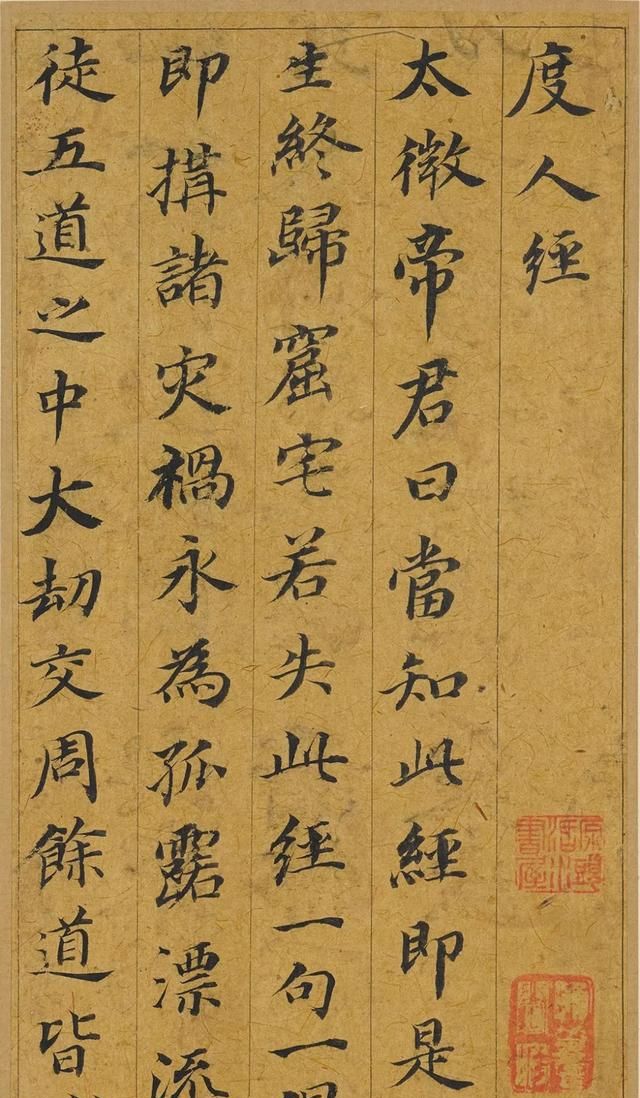 度人經
太微帝君曰當知此經即是
生終歸窟宅若失此經一句一
即搆諸灾禍永為孤露漂流
徒五道之中大劫交周餘道皆